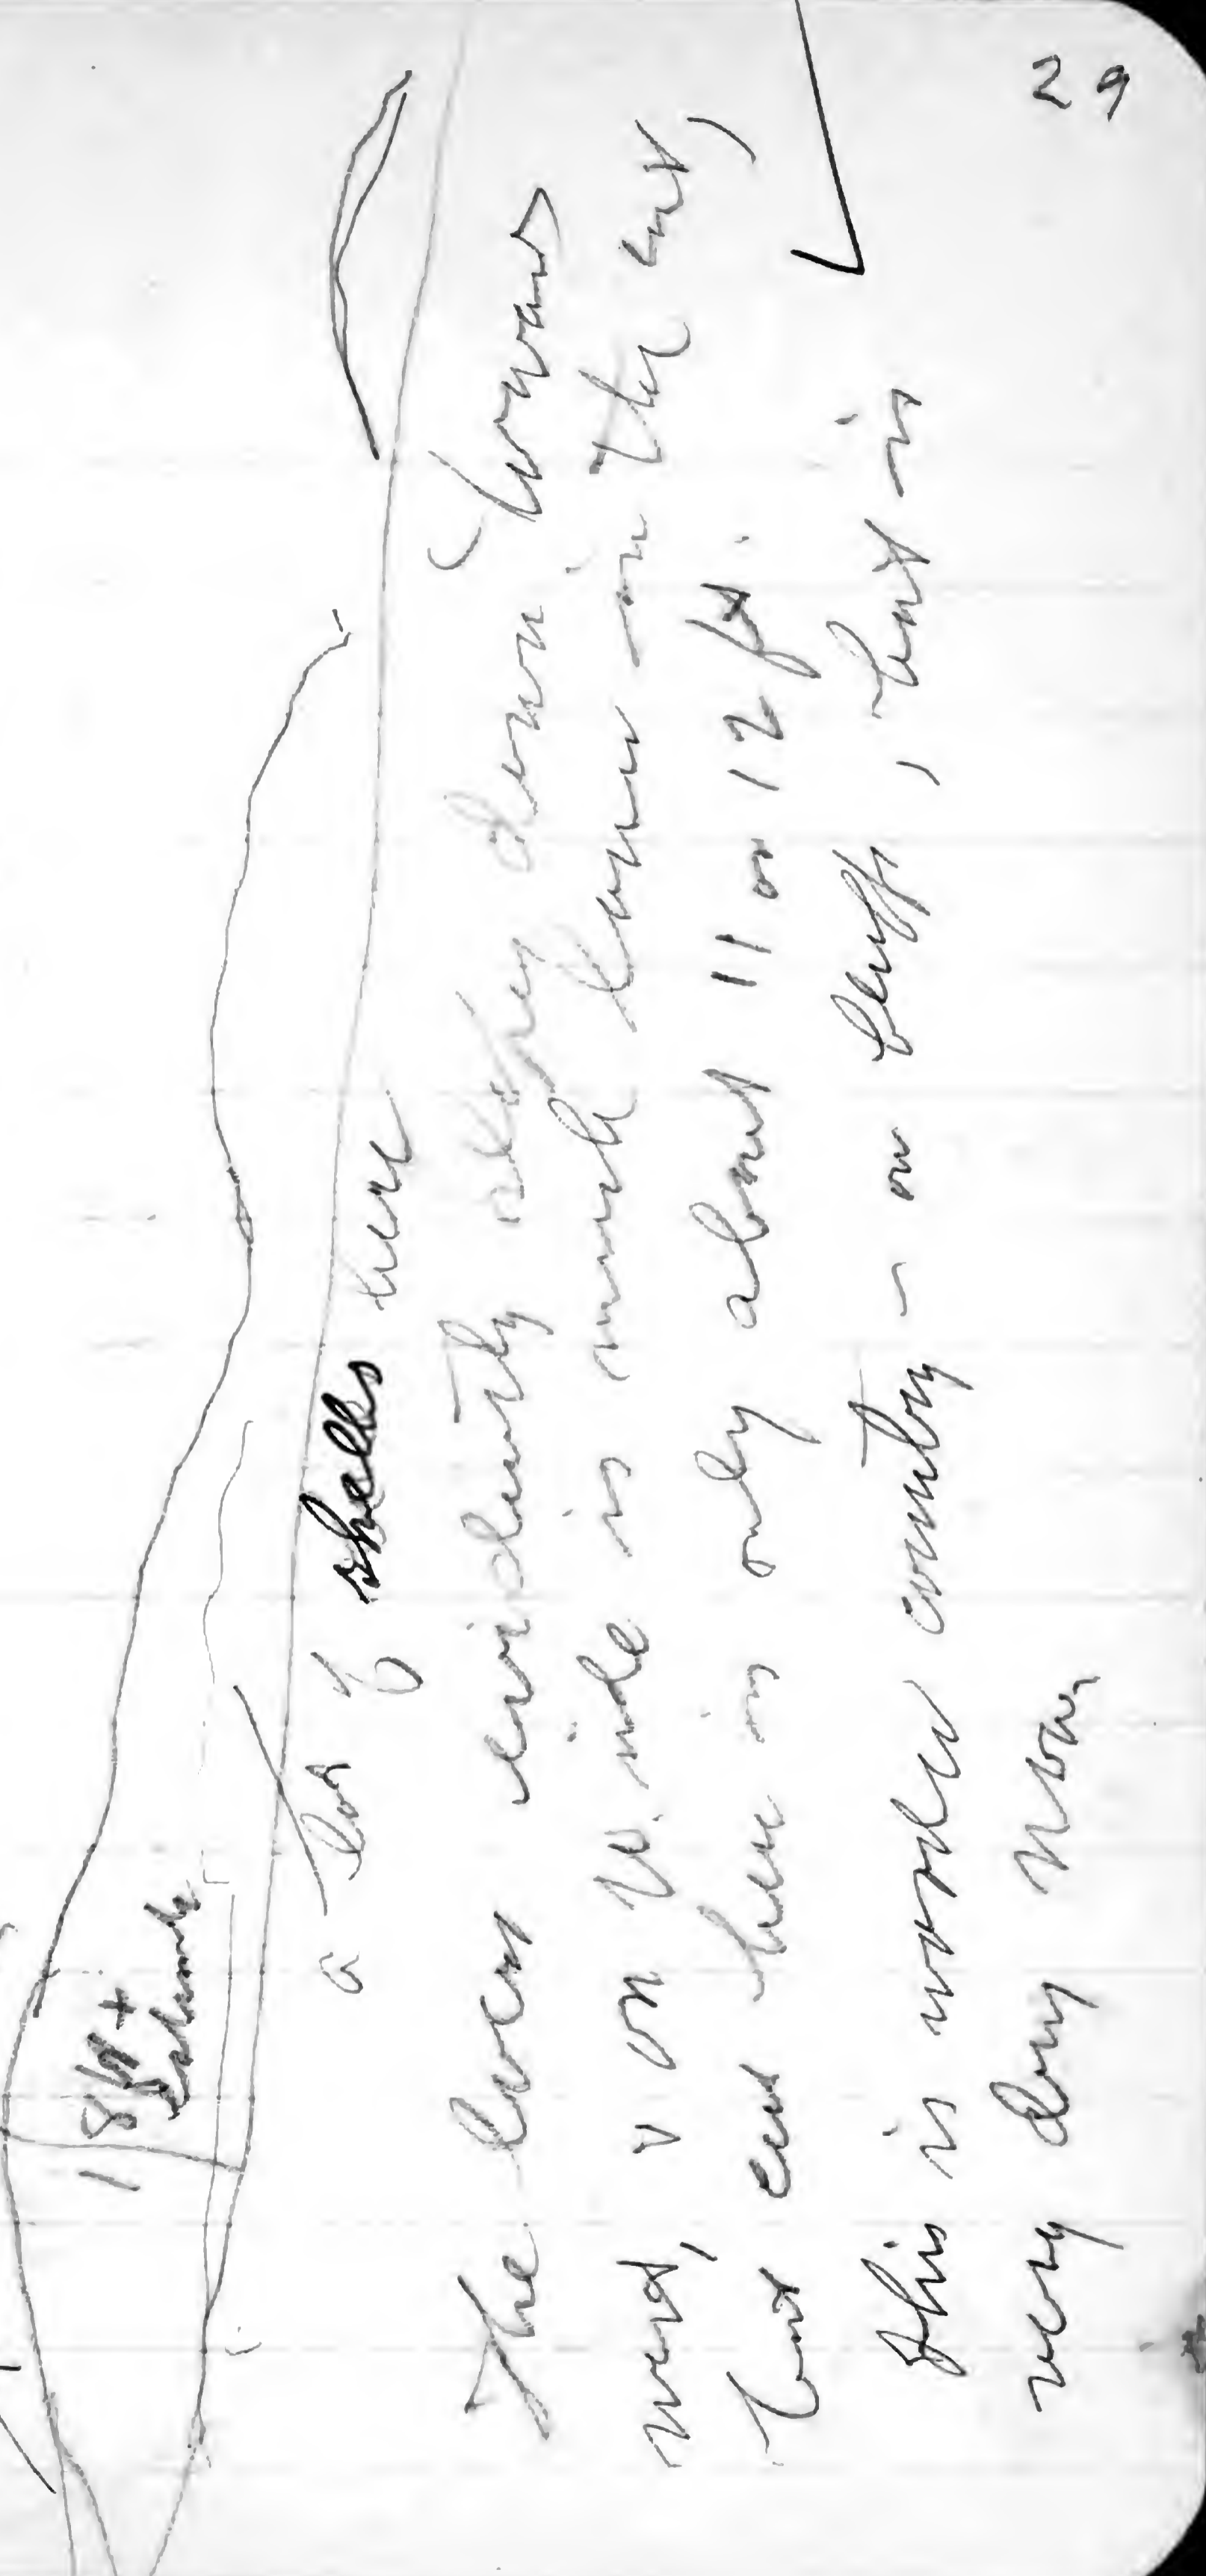 29
18 ft +
Estimate
a lot of shells here
The loess evidently slopes down toward
west, v on W. side is much thinner in the cut,
but east here is only about 11 or 12 ft.
This is wooded country – on bluffs, but is
very dry now